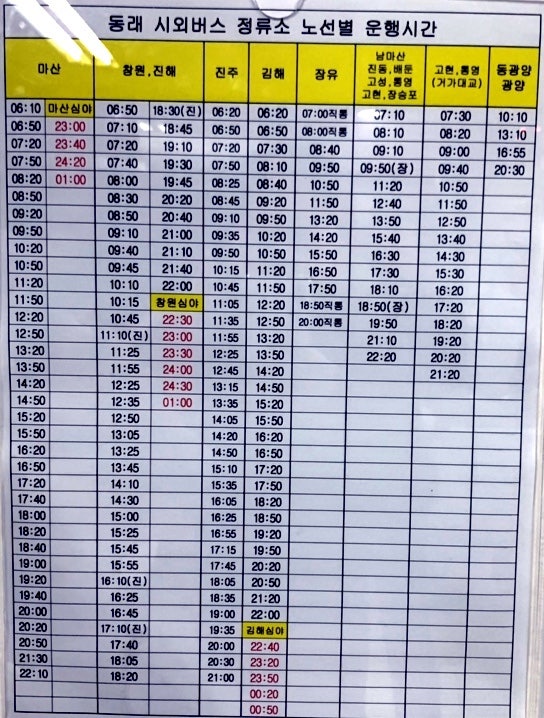 동래 시외버스 정류소 노선별 운행시간
마산 창원,진해 진주 김해 장유 남마산 진동,배둔 고성,통영 고현,장승포 고현,통영 (거가대교) 동광양 광양
06:10 마산심야 06:50 18:30(진) 06:20 06:20 07:00직통 07:10 07:30 10:10
06:50 23:00 07:10 18:45 06:50 06:50 08:00직통 08:10 08:20 13:10
07:20 23:40 07:20 19:10 07:20 07:30 08:40 09:10 09:00 16:55
07:50 24:20 07:40 19:30 07:50 08:10 09:50 09:50(장) 09:40 20:30
08:20 01:00 08:00 19:45 08:25 08:40 10:50 11:20 10:50
08:50 08:30 20:20 08:45 09:20 11:50 12:40 11:50
09:20 08:50 20:40 09:10 09:50 13:20 13:50 12:50
09:50 09:10 21:00 09:35 10:20 14:20 15:40 13:40
10:20 09:40 21:10 09:50 10:50 15:50 16:30 14:30
10:50 09:45 21:40 10:15 11:20 16:50 17:30 15:30
11:20 10:10 22:00 10:45 11:50 17:50 18:10 16:20
11:50 10:15 창원심야 11:05 12:20 18:50직통 18:50(장) 17:20
12:20 10:45 22:30 11:35 12:50 20:00직통 19:50 18:20
12:50 11:10(진) 23:00 11:55 13:20 21:10 19:20
13:20 11:25 23:30 12:25 13:50 22:20 20:20
13:50 11:55 24:00 12:45 14:20 21:20
14:20 12:25 24:30 13:15 14:50
14:50 12:35 01:00 13:35 15:20
15:20 12:50 14:05 15:50
15:50 13:05 14:20 16:20
16:20 13:25 14:50 16:50
16:50 13:45 15:10 17:20
17:20 14:10 15:35 17:50
17:40 14:30 16:05 18:20
18:00 15:00 16:25 18:50
18:20 15:25 16:55 19:20
18:40 15:45 17:15 19:50
19:00 15:55 17:45 20:20
19:20 16:10(진) 18:05 20:50
19:40 16:25 18:35 21:20
20:00 16:45 19:00 22:00
20:20 17:10(진) 19:35 김해심야
20:50 17:40 20:00 22:40
21:30 18:05 20:30 23:20
22:10 18:20 21:00 23:50
00:20
00:50